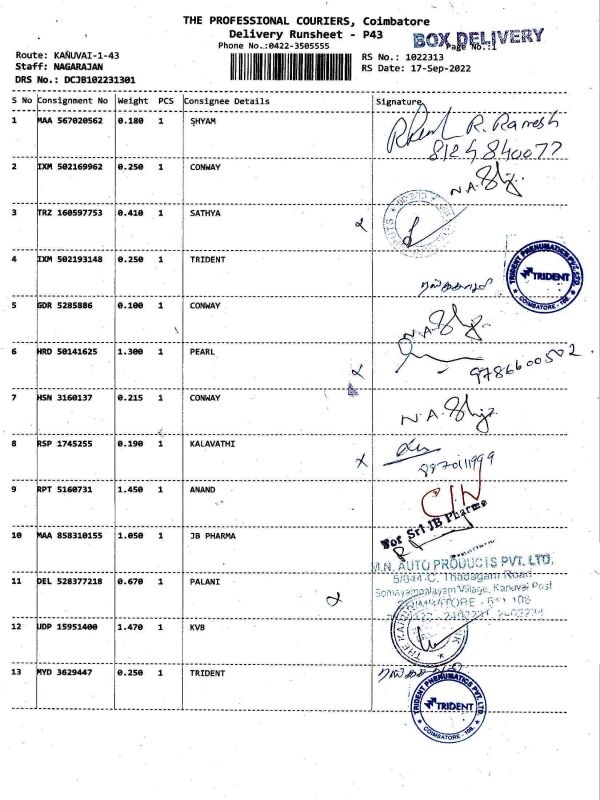 THE PROFESSIONAL COURIERS, Coimbatore
Delivery Runsheet - P43
BOX DELIVERY
Phone No.:0422-3505555
Page No.:1
Route: KANUVAI-1-43
RS No.: 1022313
Staff: NAGARAJAN
RS Date: 17-Sep-2022
DRS No.: DCJB102231301
S No Consignment No Weight PCS Consignee Details Signature
1 MAA 567020562 0.180 1 SHYAM R. Ramesh
8124840077
2 IXM 502169962 0.250 1 CONWAY N.A.
3 TRZ 160597753 0.410 1 SATHYA
4 IXM 502193148 0.250 1 TRIDENT
TRIDENT PNEUMATICS PVT. LTD.
TRIDENT
COIMBATORE - 108.
5 GDR 5285886 0.100 1 CONWAY N.A.
6 HRD 50141625 1.300 1 PEARL
9786600502
7 HSN 3160137 0.215 1 CONWAY N.A.
8 RSP 1745255 0.190 1 KALAVATHI
9 RPT 5160731 1.450 1 ANAND
For Sri JB Pharma
10 MAA 858310155 1.050 1 JB PHARMA
M.N. AUTO PRODUCTS PVT. LTD.
5/344-C, Thadagam Road
11 DEL 528377218 0.670 1 PALANI
Somayampalayam Village, Kanuvai Post
COIMBATORE - 641 108
12 UDP 15951400 1.470 1 KVB
13 MYD 3629447 0.250 1 TRIDENT
TRIDENT PNEUMATICS PVT. LTD.
TRIDENT
COIMBATORE - 108.